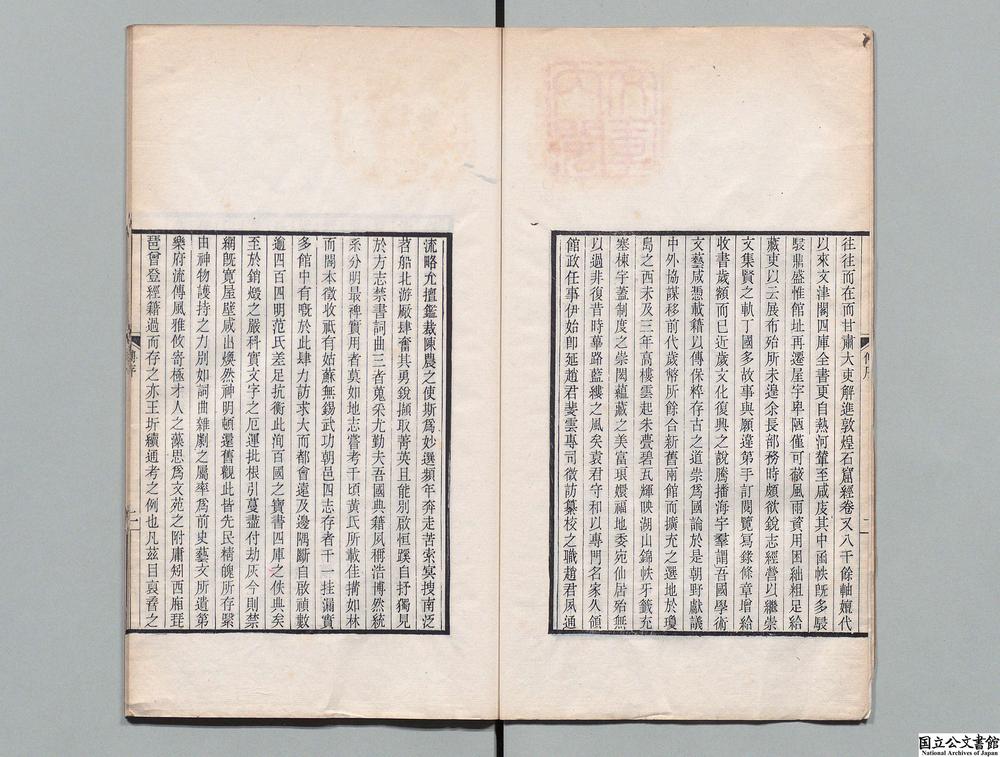 往往而在而甘肅大吏解進敦煌石窟經卷又八千餘軸嬗代
以來文津閣四庫全書更自熱河輦至咸庋其中函帙旣多駸
駸鼎盛惟館址再遷屋宇卑陋僅可蔽風雨資用困絀粗足給
藏吏以云展布殆所未遑余長部務時頗欲銳志經營以繼崇
文集賢之軌丁國多故事與願違第手訂閱覽寫錄條章增給
收書歲額而已近歲文化復興之說騰播海宇羣謂吾國學術
文藝咸憑載籍以傳保粹存古之道崇爲國論於是朝野獻議
中外協謀移前代歲幣所餘合新舊南館而擴充之選地於瓊
島之西未及三年高樓雲起朱甍碧瓦輝映湖山錦帙牙籤充
塞棟宇蓋制度之崇閎蘊藏之美富瑯嬛福地委宛仙居殆無
以過非復昔時篳路藍縷之風矣袁君守和以專門名家久領
館政任事伊始卽延趙君蜚雲專司徵訪纂校之職趙君夙通
流略尤擅鑑裁陳農之使斯爲妙選頻年奔走苦索冥搜南泛
苕船北游廠肆奮其勇銳擷取菁英且能別啟恒蹊自抒獨見
於方志禁書詞曲三者蒐采尤勤夫吾國典籍夙稱浩博然統
系分明最裨實用者莫如地志嘗考千頃黃氏所載佳搆如林
而閣本徵收祗有姑蘇無錫武功朝邑四志存者千一挂漏實
多館中有慨於此肆力訪求大而都會遠及邊隅斷自啟禎數
逾四百四明范氏差足抗衡此洵百國之寶書四庫之佚典矣
至於銷燬之嚴科實文字之厄運批根引蔓盡付劫灰今則禁
網旣寬屋壁咸出煥然神明頓還舊觀此皆先民精魄所存繄
由神物護持之力別如詞曲雜劇之屬率爲前史藝文所遺第
樂府流傳風雅攸寄極才人之藻思爲文苑之附庸矧西廂琵
琶曾登經籍過而存之亦王圻續通考之例也凡茲目袠香之
傅序
二
傅序
二
国立公文書館
National Archives of Japan